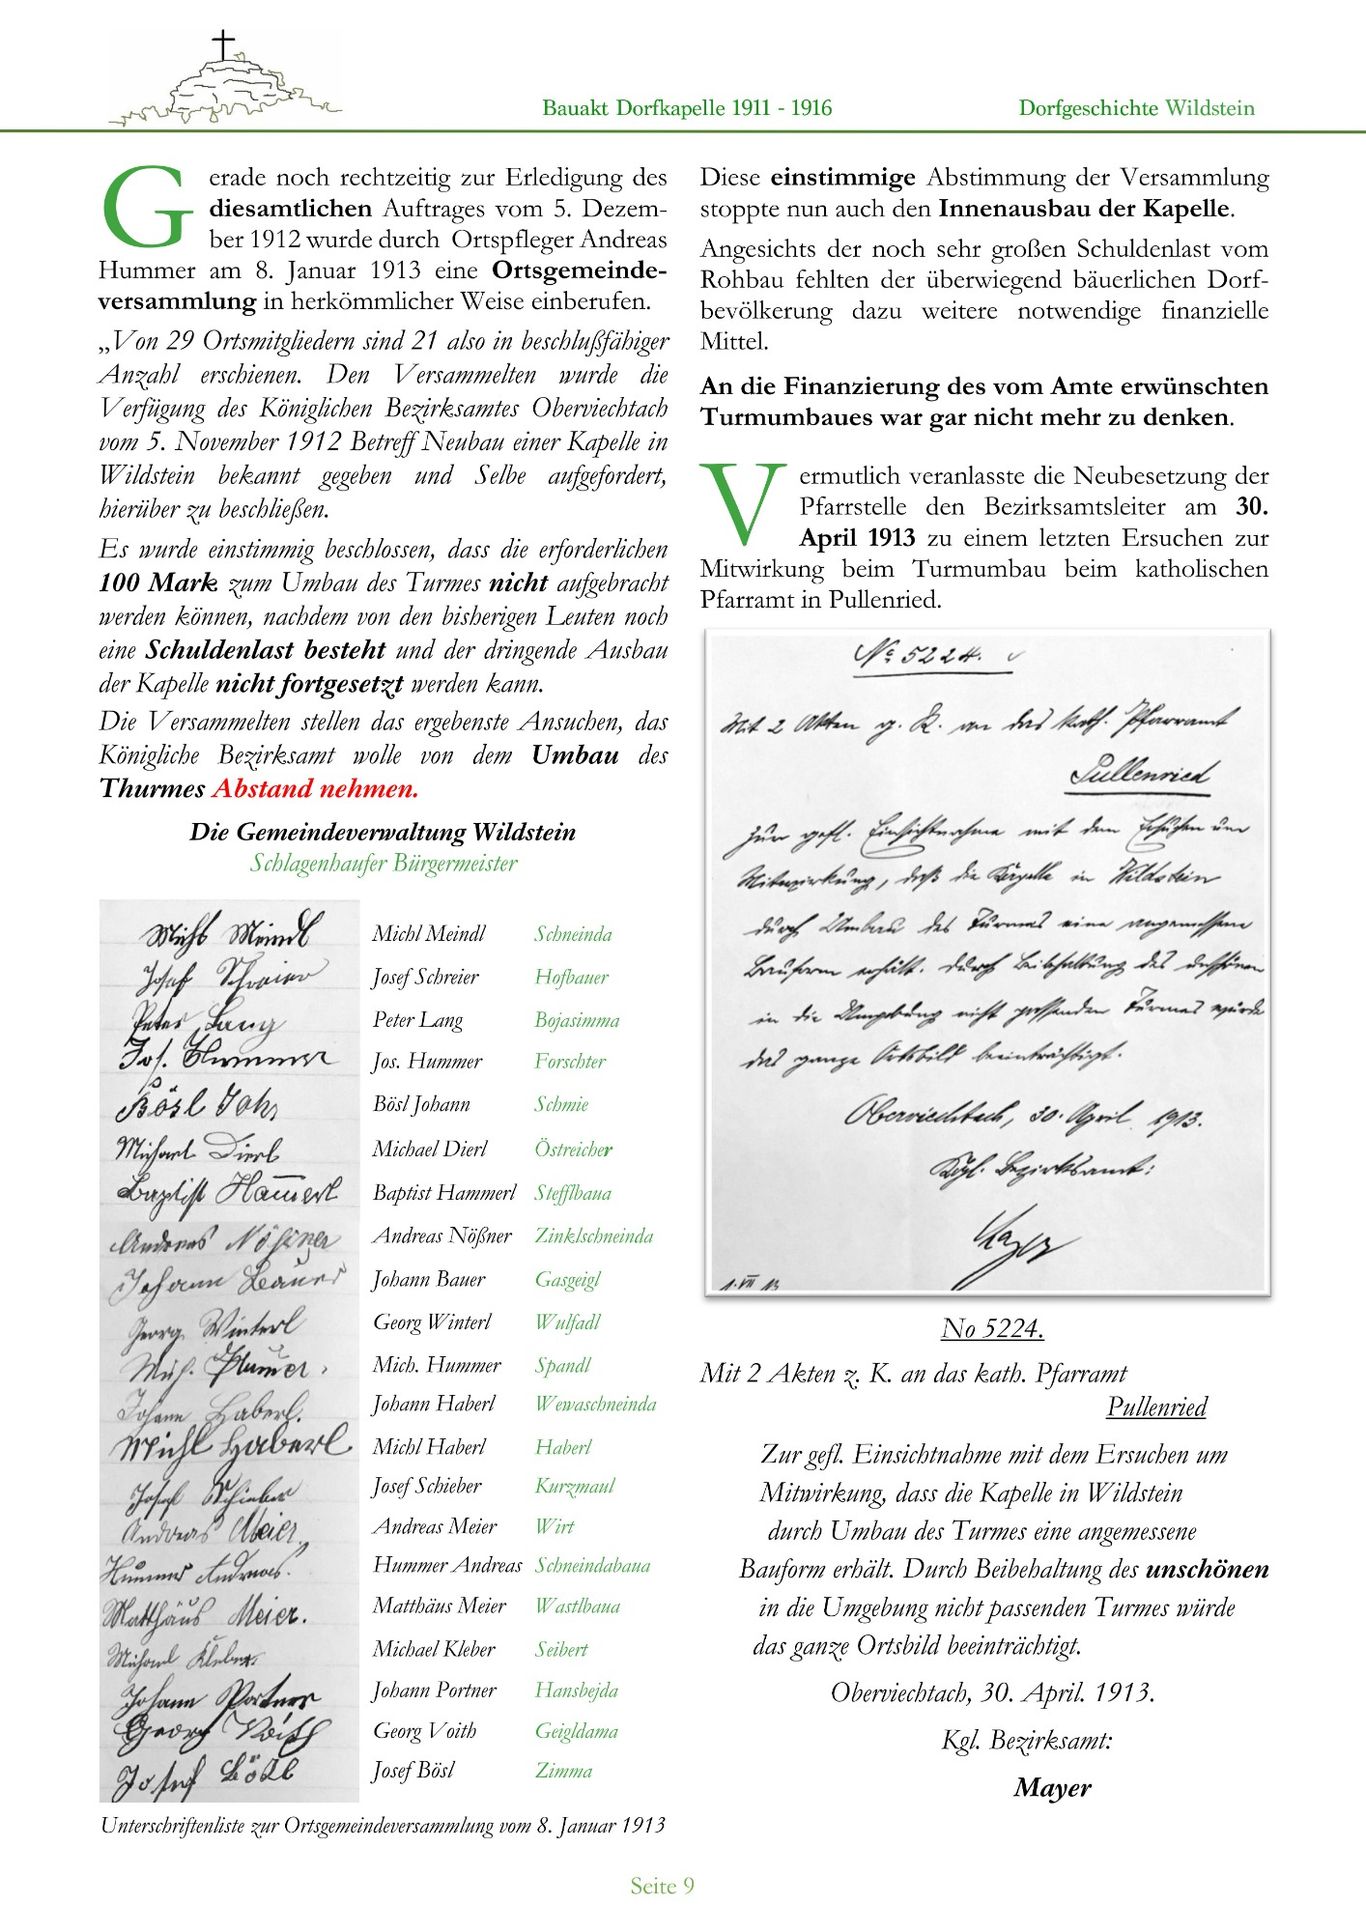 Bauakt Dorfkapelle 1911 - 1916
Dorfgeschichte Wildstein
Gerade noch rechtzeitig zur Erledigung des
diesamtlichen Auftrages vom 5. Dezem-
ber 1912 wurde durch Ortspfleger Andreas
Hummer am 8. Januar 1913 eine Ortsgemeinde-
versammlung in herkömmlicher Weise einberufen.
„Von 29 Ortsmitgliedern sind 21 also in beschlußfähiger
Anzahl erschienen. Den Versammelten wurde die
Verfügung des Königlichen Bezirksamtes Oberviechtach
vom 5. November 1912 Betreff Neubau einer Kapelle in
Wildstein bekannt gegeben und Selbe aufgefordert,
hierüber zu beschließen.
Es wurde einstimmig beschlossen, dass die erforderlichen
100 Mark zum Umbau des Turmes nicht aufgebracht
werden können, nachdem von den bisherigen Leuten noch
eine Schuldenlast besteht und der dringende Ausbau
der Kapelle nicht fortgesetzt werden kann.
Die Versammelten stellen das ergebenste Ansuchen, das
Königliche Bezirksamt wolle von dem Umbau des
Thurmes Abstand nehmen.
Die Gemeindeverwaltung Wildstein
Schlagenhaufer Bürgermeister
Michl Meindl Michl Meindl Schneinda
Josef Schreier Josef Schreier Hofbauer
Peter Lang Peter Lang Bojasimma
Jos. Hummer Jos. Hummer Forschter
Bösl Joh Bösl Johann Schmie
Michael Dierl Michael Dierl Östreicher
Baptist Ham̅erl Baptist Hammerl Stefflbaua
Andreas Nößner Andreas Nößner Zinklschneinda
Johann Bauer Johann Bauer Gasgeigl
Georg Winterl Georg Winterl Wulfadl
Mich. Hum̅er. Mich. Hummer Spandl
Johann Haberl. Johann Haberl Wewaschneinda
Michl Haberl Michl Haberl Haberl
Josef Schieber Josef Schieber Kurzmaul
Andreas Meier Andreas Meier Wirt
Hum̅er Andreas. Hummer Andreas Schneindabaua
Matthäus Meier. Matthäus Meier Wastlbaua
Michael Kleber. Michael Kleber Seibert
Johann Portner Johann Portner Hansbejda
Georg Voith Georg Voith Geigldama
Josef Bösl Josef Bösl Zimma
Unterschriftenliste zur Ortsgemeindeversammlung vom 8. Januar 1913
Diese einstimmige Abstimmung der Versammlung
stoppte nun auch den Innenausbau der Kapelle.
Angesichts der noch sehr großen Schuldenlast vom
Rohbau fehlten der überwiegend bäuerlichen Dorf-
bevölkerung dazu weitere notwendige finanzielle
Mittel.
An die Finanzierung des vom Amte erwünschten
Turmumbaues war gar nicht mehr zu denken.
Vermutlich veranlasste die Neubesetzung der
Pfarrstelle den Bezirksamtsleiter am 30.
April 1913 zu einem letzten Ersuchen zur
Mitwirkung beim Turmumbau beim katholischen
Pfarramt in Pullenried.
No 5224.
Mit 2 Akten z. K. an das kath. Pfarramt
Pullenried
zur gefl. Einsichtnahme mit dem Ersuchen um
Mitwirkung, daß die Kapelle in Wildstein
durch Umbau des Turmes eine angemessene
Bauform erhält. Durch Beibehaltung des unschönen
in die Umgebung nicht passenden Turmes würde
das ganze Ortsbild beeinträchtigt.
Oberviechtach, 30. April 1913.
Kgl. Bezirksamt:
Mayer
1. VII 13
No 5224.
Mit 2 Akten z. K. an das kath. Pfarramt
Pullenried
Zur gefl. Einsichtnahme mit dem Ersuchen um
Mitwirkung, dass die Kapelle in Wildstein
durch Umbau des Turmes eine angemessene
Bauform erhält. Durch Beibehaltung des unschönen
in die Umgebung nicht passenden Turmes würde
das ganze Ortsbild beeinträchtigt.
Oberviechtach, 30. April. 1913.
Kgl. Bezirksamt:
Mayer
Seite 9